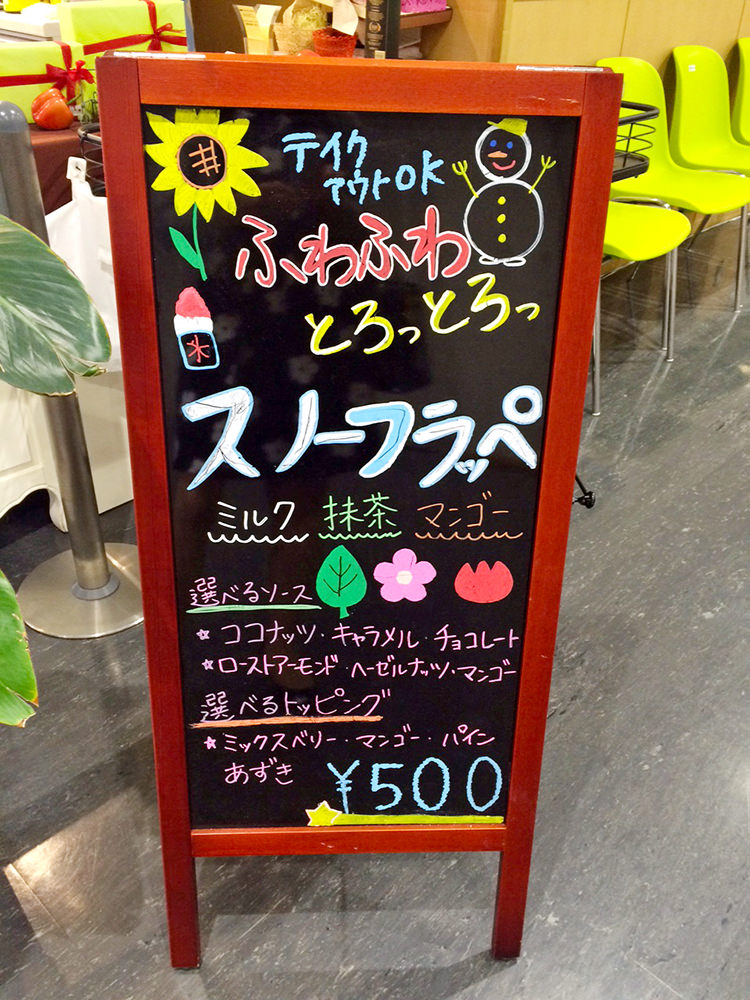 テイク
アウトOK
ふわふわ
とろっとろっ
氷
スノーフラッペ
ミルク 抹茶 マンゴー
選べるソース
☆ ココナッツ・キャラメル・チョコレート
☆ローストアーモンド・ヘーゼルナッツ・マンゴー
選べるトッピング
☆ミックスベリー・マンゴー・パイン
あずき
¥500